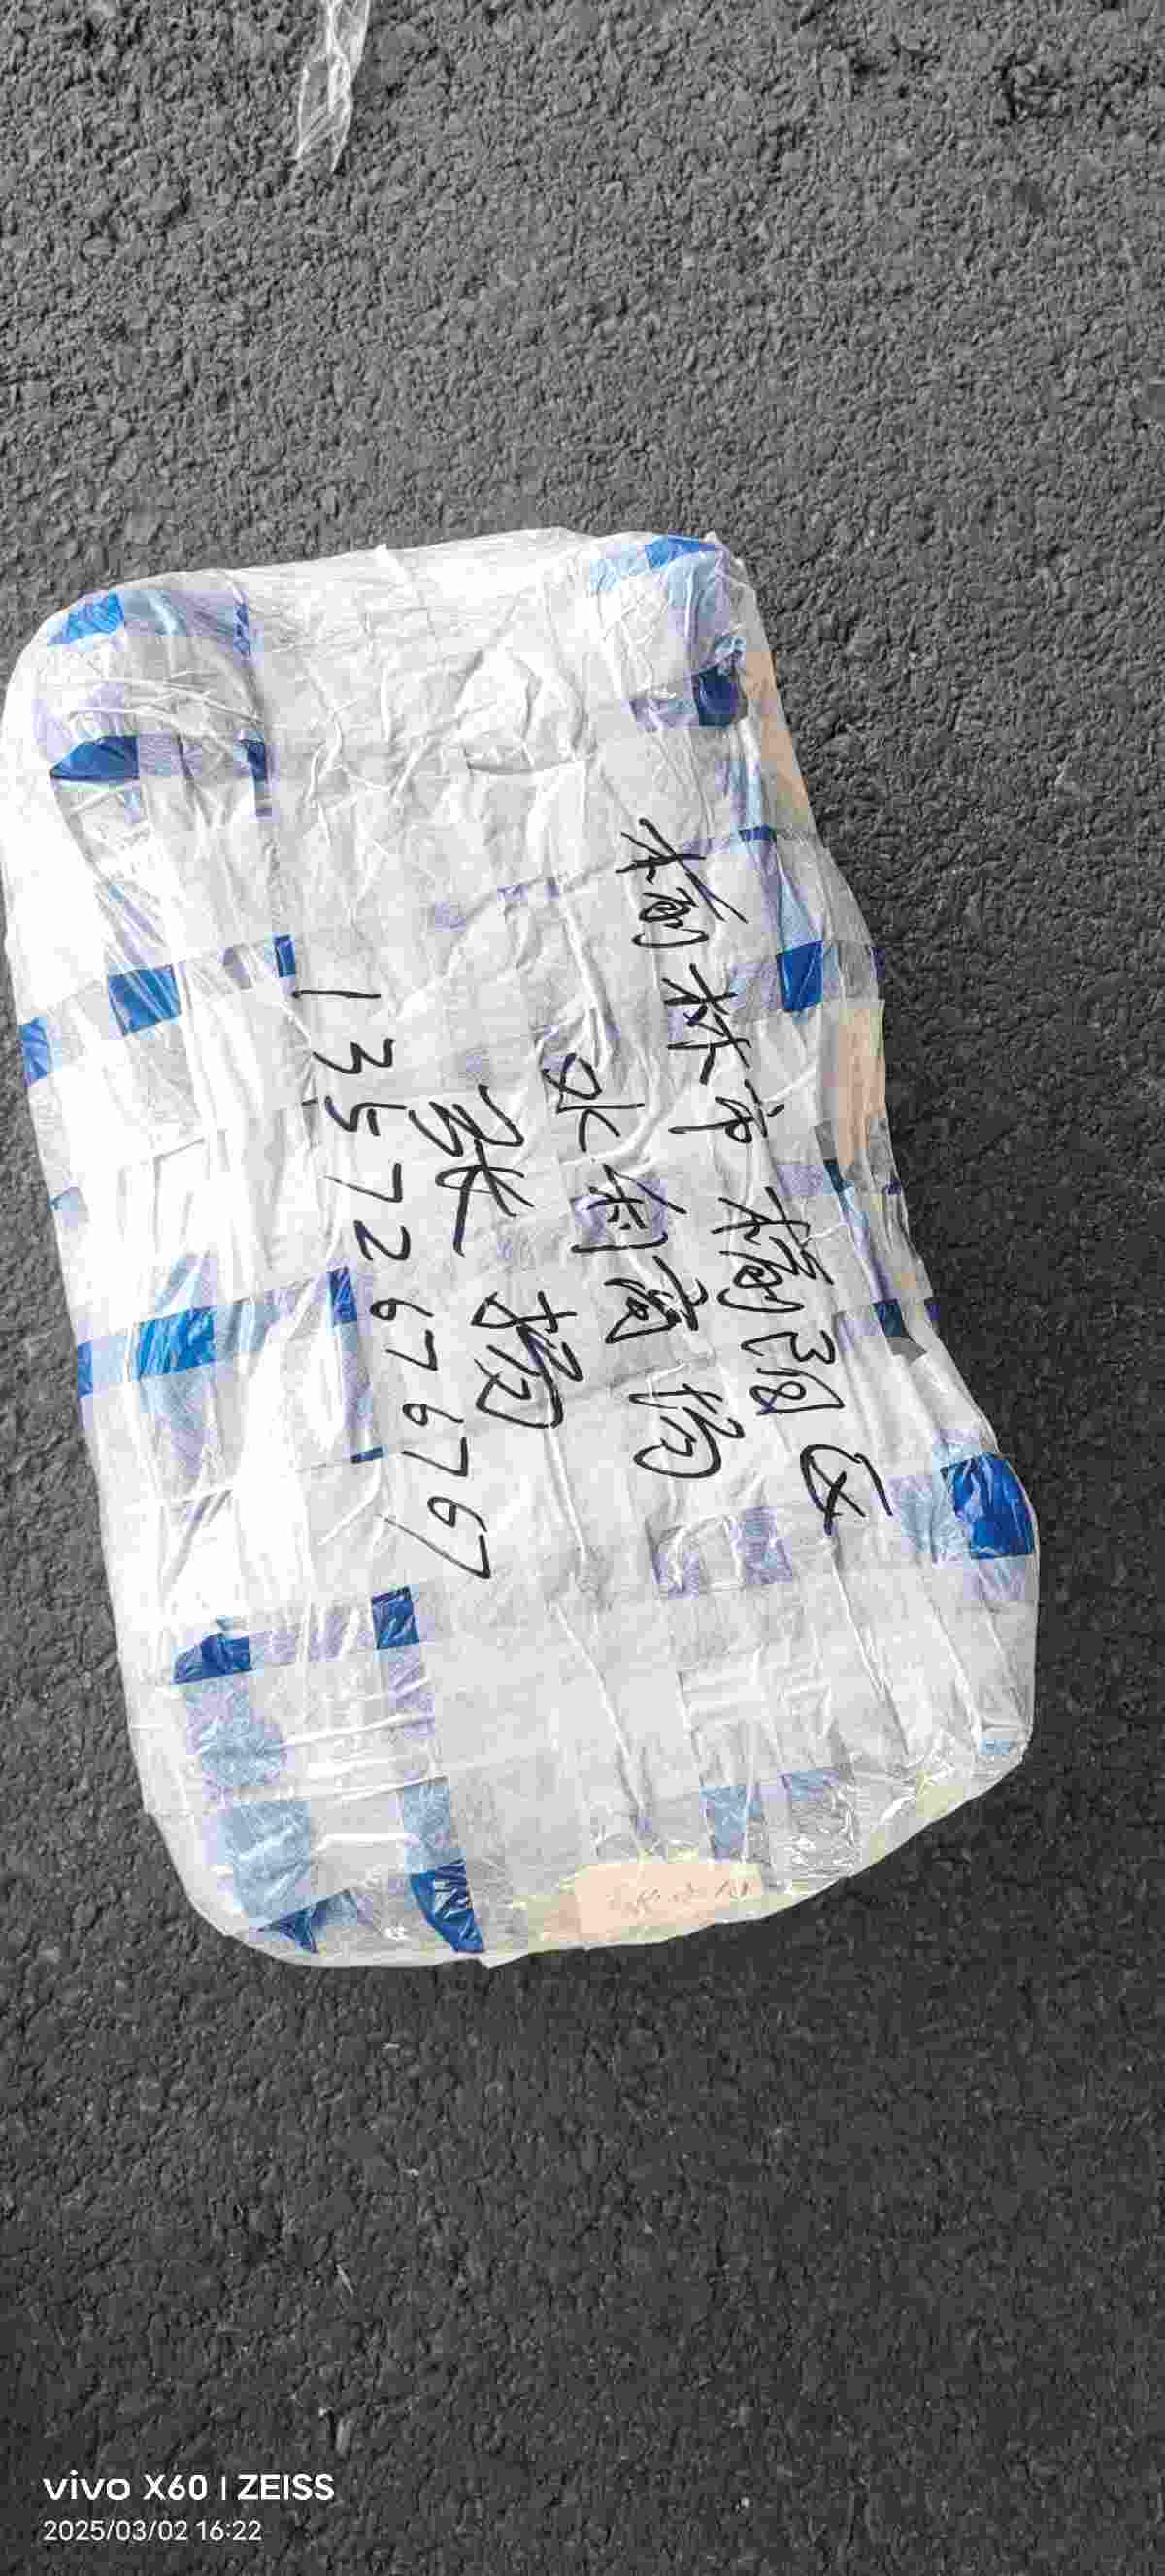 榆林市榆阳区
水利商场
张扬
13572676767
vivo X60 | ZEISS
2025/03/02 16:22